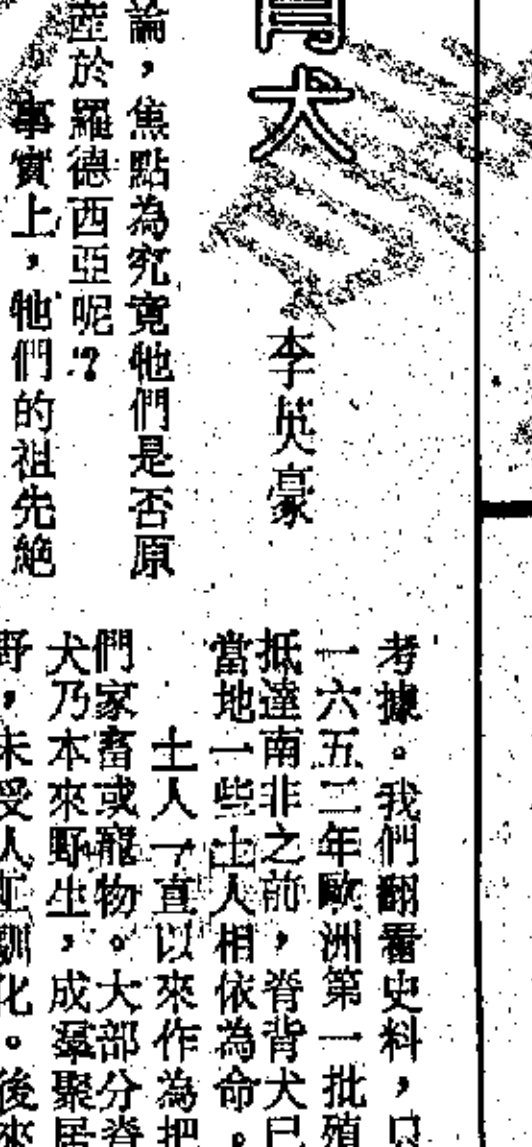 背犬
李英豪
論，焦點為究竟牠們是否原
產於羅德西亞呢？
事實上，牠們的祖先絕
考據。我們翻看史料，只
一六五二年歐洲第一批殖
抵達南非之前，脊背犬已
當地一些土人相依為命。
土人一直以來作為把
們家畜或寵物。大部分脊
犬乃本來野生，成羣聚居
野，未受人工馴化。後來